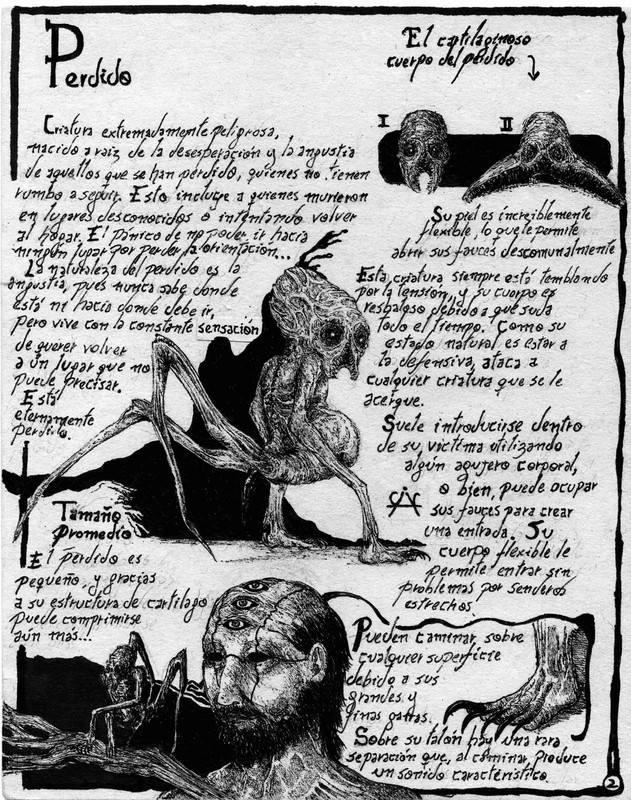 Perdido
El cartilaginoso
cuerpo del perdido
I
II
Criatura extremadamente peligrosa,
nacido a raiz de la desesperación y la angustia
de aquellos que se han perdido, quienes no tienen
rumbo a seguir. Esto incluye a quienes murieron
en lugares desconocidos o intentando volver
al hogar. El pánico de no poder ir hacia
ningún lugar por perder la orientación...
La naturaleza del perdido es la
angustia, pues nunca sabe donde
está ni hacia donde debe ir,
pero vive con la constante sensación
de querer volver
a un lugar que no
puede precisar.
Está
eternamente
perdido.
Su piel es increiblemente
flexible, lo que le permite
abrir sus fauces descomunalmente
Esta criatura siempre está temblando
por la tensión, y su cuerpo es
resbaloso debido a que suda
todo el tiempo. Como su
estado natural es estar a
la defensiva, ataca a
cualquier criatura que se le
acerque.
Suele introducirse dentro
de su victima utilizando
algún agujero corporal,
o bien, puede ocupar
sus fauces para crear
una entrada. Su
cuerpo flexible le
permite entrar sin
problemas por senderos
estrechos.
Tamaño
promedio
El perdido es
pequeño, y gracias
a su estructura de cartilago
puede comprimirse
aún más...
Pueden caminar sobre
cualquier superficie
debido a sus
grandes y
finas garras.
Sobre su talón hay una rara
separación que, al caminar, produce
un sonido característico.
2